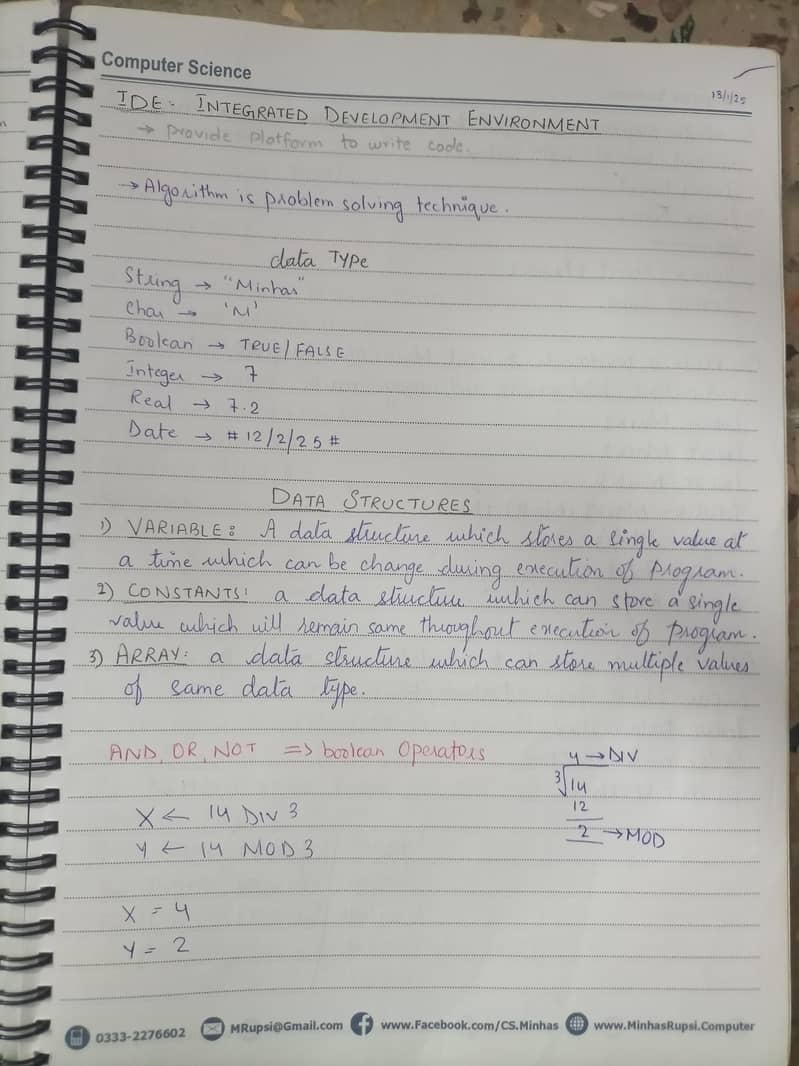 Computer Science
13/1/25
IDE: INTEGRATED DEVELOPMENT ENVIRONMENT
→ Provide platform to write code.
→ Algorithm is problem solving technique.
data TYPE
String → "Minhas"
Char → 'M'
Boolean → TRUE/FALSE
Integer → 7
Real → 7.2
Date → # 12/2/25 #
DATA STRUCTURES
1) VARIABLE: A data structure which stores a single value at
a time which can be change during execution of program.
2) CONSTANTS: a data structure which can store a single
value which will remain same throughout execution of program.
3) ARRAY: a data structure which can store multiple values
of same data type.
AND, OR, NOT => boolean Operators
4 → DIV
3√14
12
2 → MOD
X ← 14 DIV 3
Y ← 14 MOD 3
X = 4
Y = 2
0333-2276602 MRupsi@Gmail.com www.Facebook.com/CS.Minhas www.MinhasRupsi.Computer